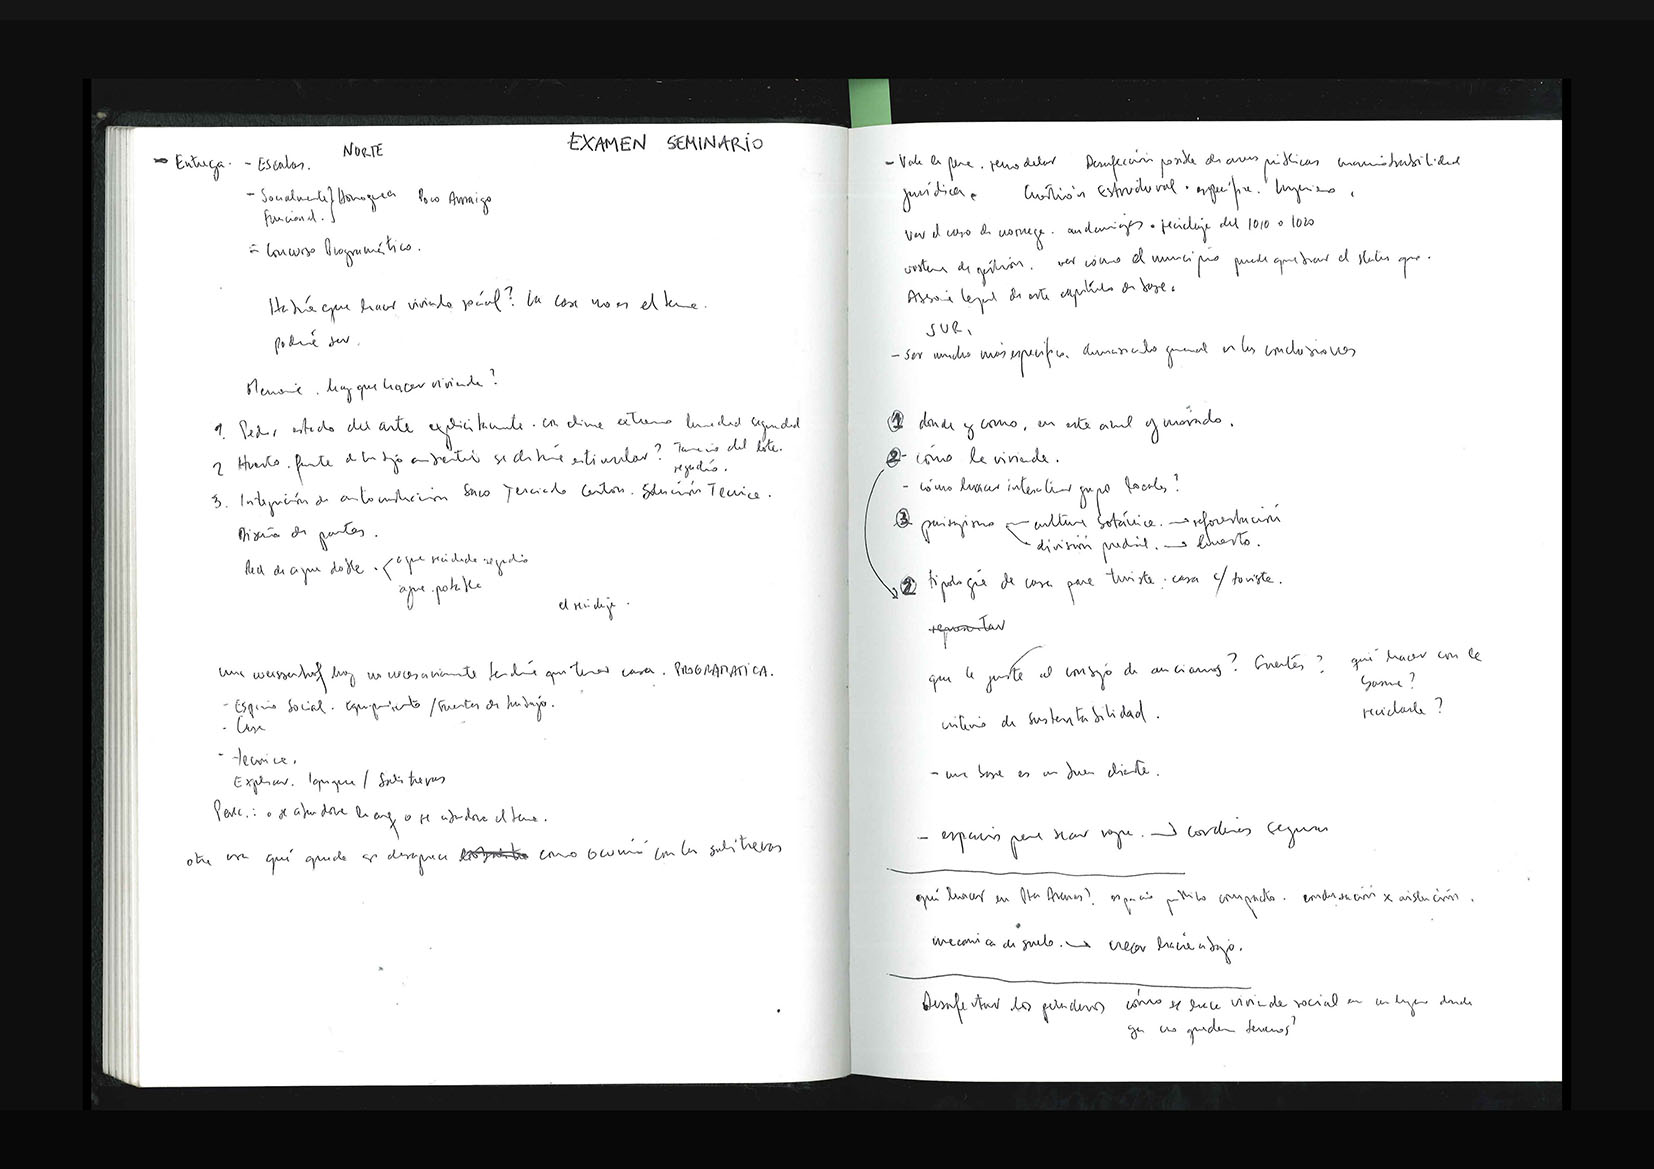 EXAMEN SEMINARIO
NORTE
Entrega. - Escalas.
- Socialmente } Homogenea Poco Arraigo
Funcional.
- Concurso Programático.
Habría que hacer vivienda social? La casa no es el tema.
podría ser.
Memoria. hay que hacer vivienda?
1. Pedir estado del arte explícitamente. con clima extremo humedad
2 Huerto. fuente de trabajo se debería estimular? Tamaño del lote.
regadío.
3. Integración de Saco Solución Técnica.
Diseño de partes.
Red de agua doble. agua reciclada regadío
agua potable
el reciclaje.
una weissenhof hoy no necesariamente tendría que tener casa. PROGRAMATICA.
- Espacio Social. Equipamiento / Fuentes de trabajo.
- Casa
- técnica.
Explicar. Iquique / Salitreras
o se abandona o se abandona el tema.
otra vez qué queda se desguaza como ocurrió con las salitreras
- Vale la pena. remodelar Desafección posible de areas públicas
jurídica. Cuestión Estructural. específica. Ingeniero.
Ver el caso de noruega. andamiajes. reciclaje del 1010 o 1020
sistema de gestión. ver cómo el municipio puede quebrar el status quo.
Asesoría legal de este capítulo de base.
SUR.
- Ser mucho más específico. demasiado general en las conclusiones
1 donde y como, en este
2 - cómo la vivienda.
- cómo hacer interactuar grupos locales?
3 paisajismo cultura botánica. → reforestación
división predial. → huerto.
2 tipología de casa para turista. casa c/ turista.
que le guste al consejo de ancianos? Fuentes? qué hacer con la
basura?
reciclarla?
criterio de sustentabilidad.
- una base es un buen cliente.
- espacios para secar ropa. → cordeles
qué hacer en Pta Arenas? espacio público compacto. condensación x aislación.
mecanica de suelo. → crecer hacia abajo.
Desafectar los cómo se hace vivienda social en un lugar donde
ya no quedan terrenos?